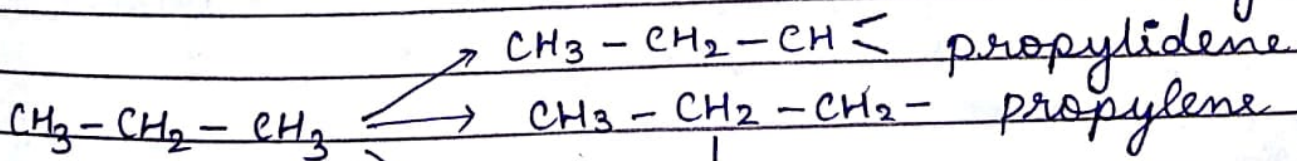 CH3 - CH2 - CH < propylidene
CH3 - CH2 - CH3 → CH3 - CH2 - CH2 - propylene